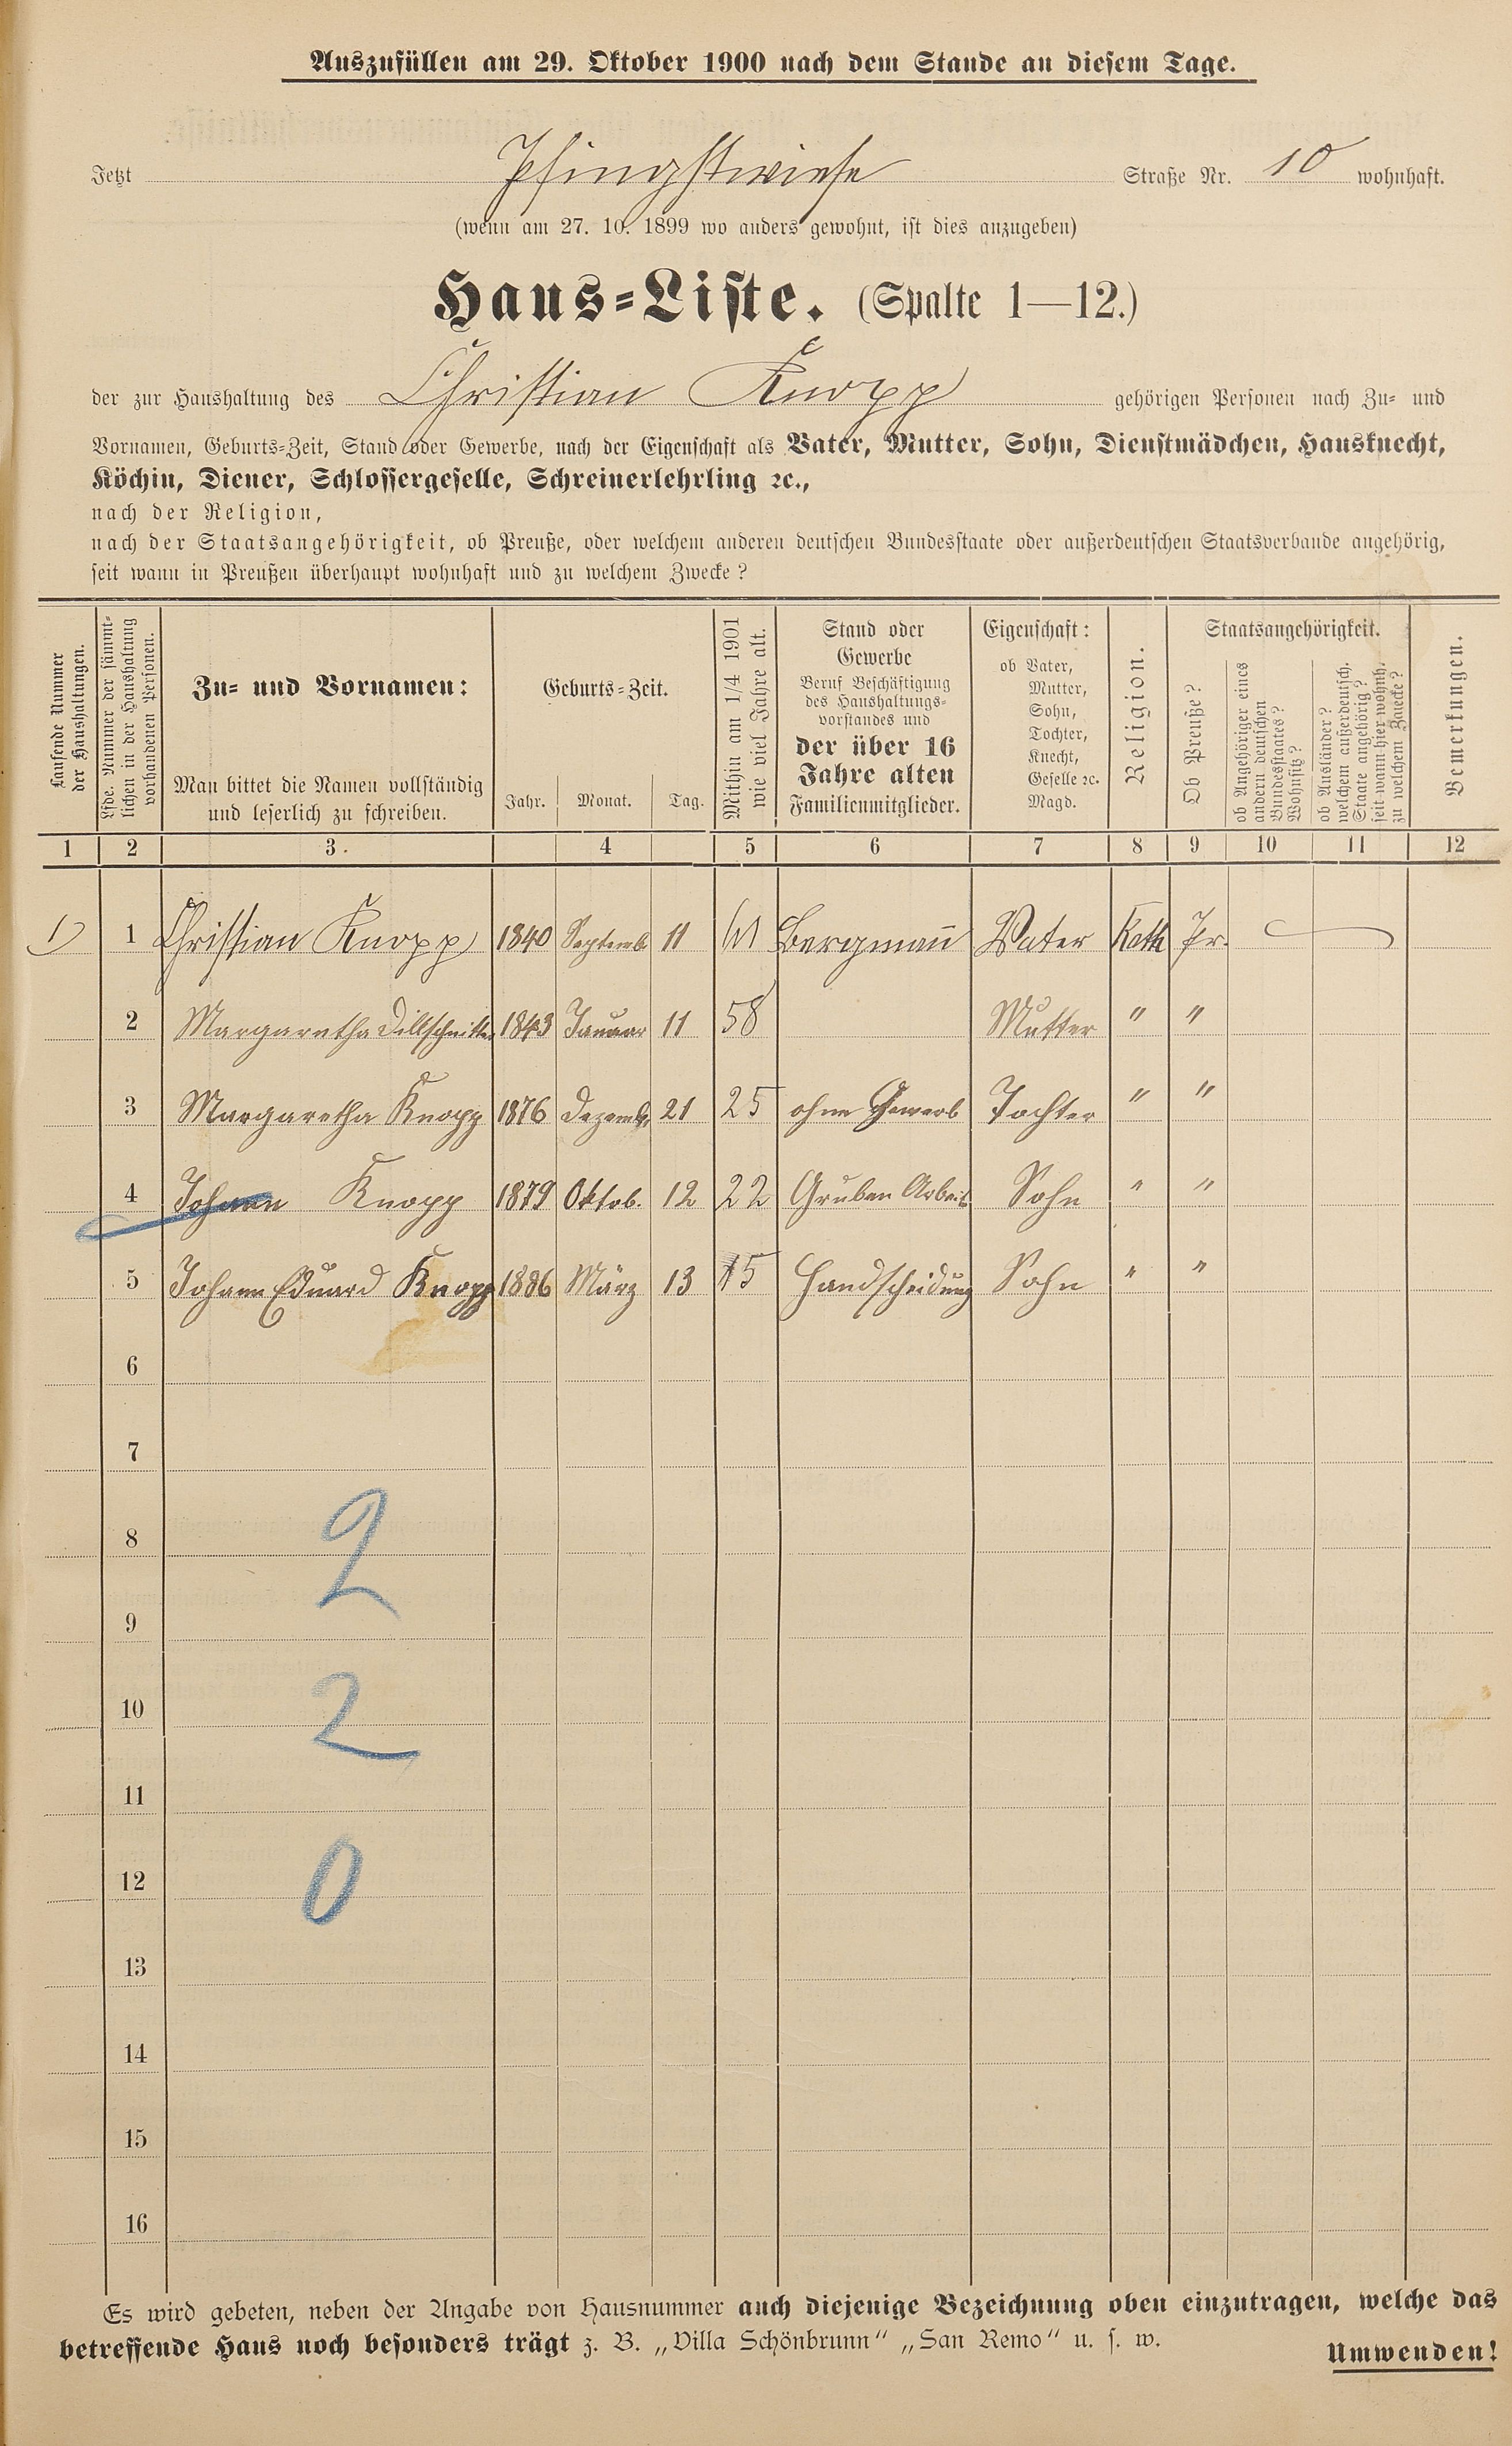 Auszufüllen am 29. Oktober 1900 nach dem Stande an diesem Tage.
Jetzt Pfingstwiese Straße Nr. 10 wohnhaft.
(wenn am 27. 10. 1899 wo anders gewohnt, ist dies anzugeben)
Haus-Liste. (Spalte 1—12.)
der zur Haushaltung des Christian Knopp gehörigen Personen nach Zu- und
Vornamen, Geburts-Zeit, Stand oder Gewerbe, nach der Eigenschaft als Vater, Mutter, Sohn, Dienstmädchen, Hausknecht,
Köchin, Diener, Schlossergeselle, Schreinerlehrling ꝛc.,
nach der Religion,
nach der Staatsangehörigkeit, ob Preuße, oder welchem anderen deutschen Bundesstaate oder außerdeutschen Staatsverbande angehörig,
seit wann in Preußen überhaupt wohnhaft und zu welchem Zwecke?
Laufende Nummer
der Haushaltungen.
Lfde. Nummer der sämmt-
lichen in der Haushaltung
vorhandenen Personen.
Zu- und Vornamen:
Man bittet die Namen vollständig
und leserlich zu schreiben.
Geburts-Zeit.
Jahr. Monat. Tag.
Mithin am 1/4 1901
wie viel Jahre alt.
Stand oder
Gewerbe
Beruf Beschäftigung
des Haushaltungs-
vorstandes und
der über 16
Jahre alten
Familienmitglieder.
Eigenschaft:
ob Vater,
Mutter,
Sohn,
Tochter,
Knecht,
Geselle ꝛc.
Magd.
Religion.
Staatsangehörigkeit.
Ob Preuße?
ob Angehöriger eines
andern deutschen
Bundesstaates?
Wohnsitz?
ob Ausländer?
welchem außerdeutsch.
Staate angehörig?
seit wann hier wohnh.
zu welchem Zwecke?
Bemerkungen.
1 2 3. 4 5 6 7 8 9 10 11 12
1) 1 Christian Knopp 1840 Septemb. 11 61 Bergmañ Vater Kath Pr.
2 Margaretha Dillschnitter 1843 Januar 11 58 Mutter " "
3 Margaretha Knopp 1876 Dezemb. 21 25 ohne Gewerb Tochter " "
4 Johann Knopp 1879 Oktob. 12 22 Gruben Arbeit. Sohn " "
5 Johann Eduard Knopp 1886 März 13 15 Handscheidung Sohn " "
6
7
8
2
9
10
2
11
12
0
13
14
15
16
Es wird gebeten, neben der Angabe von Hausnummer auch diejenige Bezeichnung oben einzutragen, welche das
betreffende Haus noch besonders trägt z. B. „Villa Schönbrunn“ „San Remo“ u. s. w.
Umwenden!